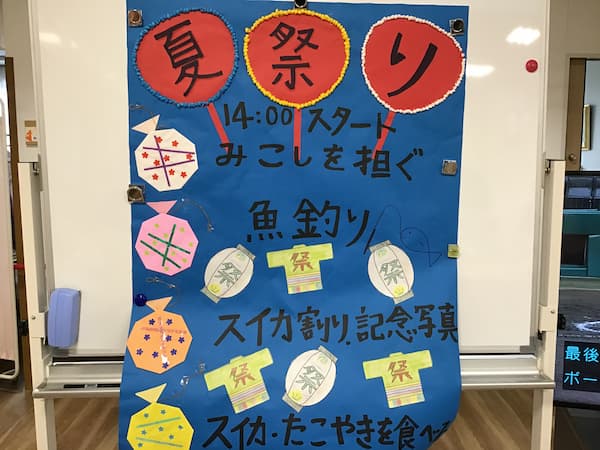 夏祭り
14:00 スタート
みこしを担ぐ
魚釣り
祭 祭 祭
スイカ割り.記念写真
祭 祭 祭
スイカ・たこやきを食べ
最後
ボー